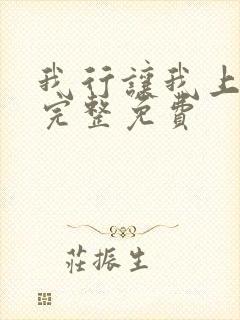 我行讓我上
完整免費
莊振生